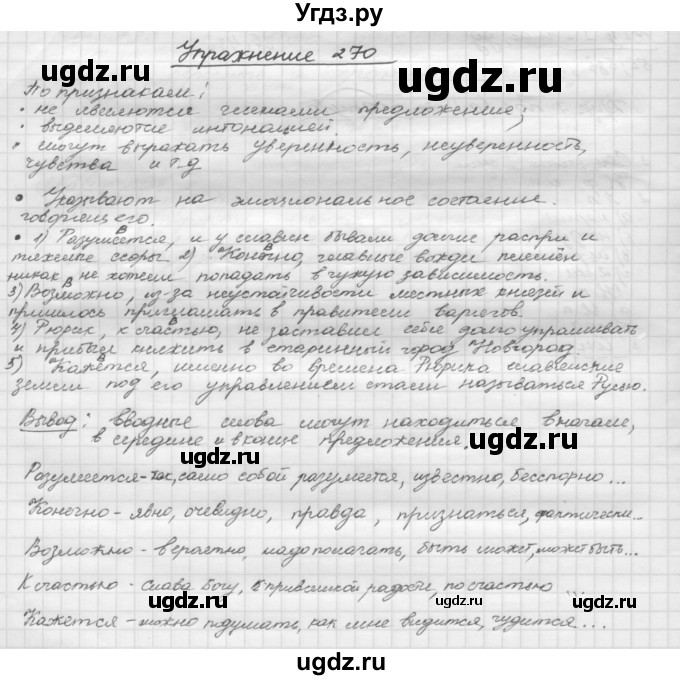 Угдз.ру
Упражнение 270
По признакам:
• не являются членами предложение;
• выделяются интонацией.
• могут выражать уверенность, неуверенность,
чувства и т.д
• Указывают на эмоциональное состаение.
говорящего.
• 1) Разумеется, и у славян бывали долгие распри и
тяжелые ссоры. 2) Конечно, главные вожди племён
никак не хотели попадать в чужую зависимость.
3) Возможно, из-за неустойчивости местных князей и
пришлось приглашать в правители варягов.
4) Рюрик, к счастью, не заставил себе долго упрашивать
и прибыл княжить в старинный город Новгород.
5) Кажется, именно во времена Рюрика славянские
земли под его управлением стали называться Русью.
Вывод: вводные слова могут находиться вначале,
в середине и в конце предложения.
Разумеется - так, само собой разумеется, известно, бесспорно...
Конечно - явно, очевидно, правда, признаться, фактически...
Возможно - вероятно, надо полагать, быть может, может быть...
К счастью - слава Богу, к превеликой радости, по счастью ...
Кажется - можно подумать, как мне видится, чудится ...
ugdz.ru
ugdz.ru
ugdz.ru
ugdz.ru
ugdz.ru
ugdz.ru
ugdz.ru
ugdz.ru
ugdz.ru
ugdz.ru
ugdz.ru
ugdz.ru
ugdz.ru